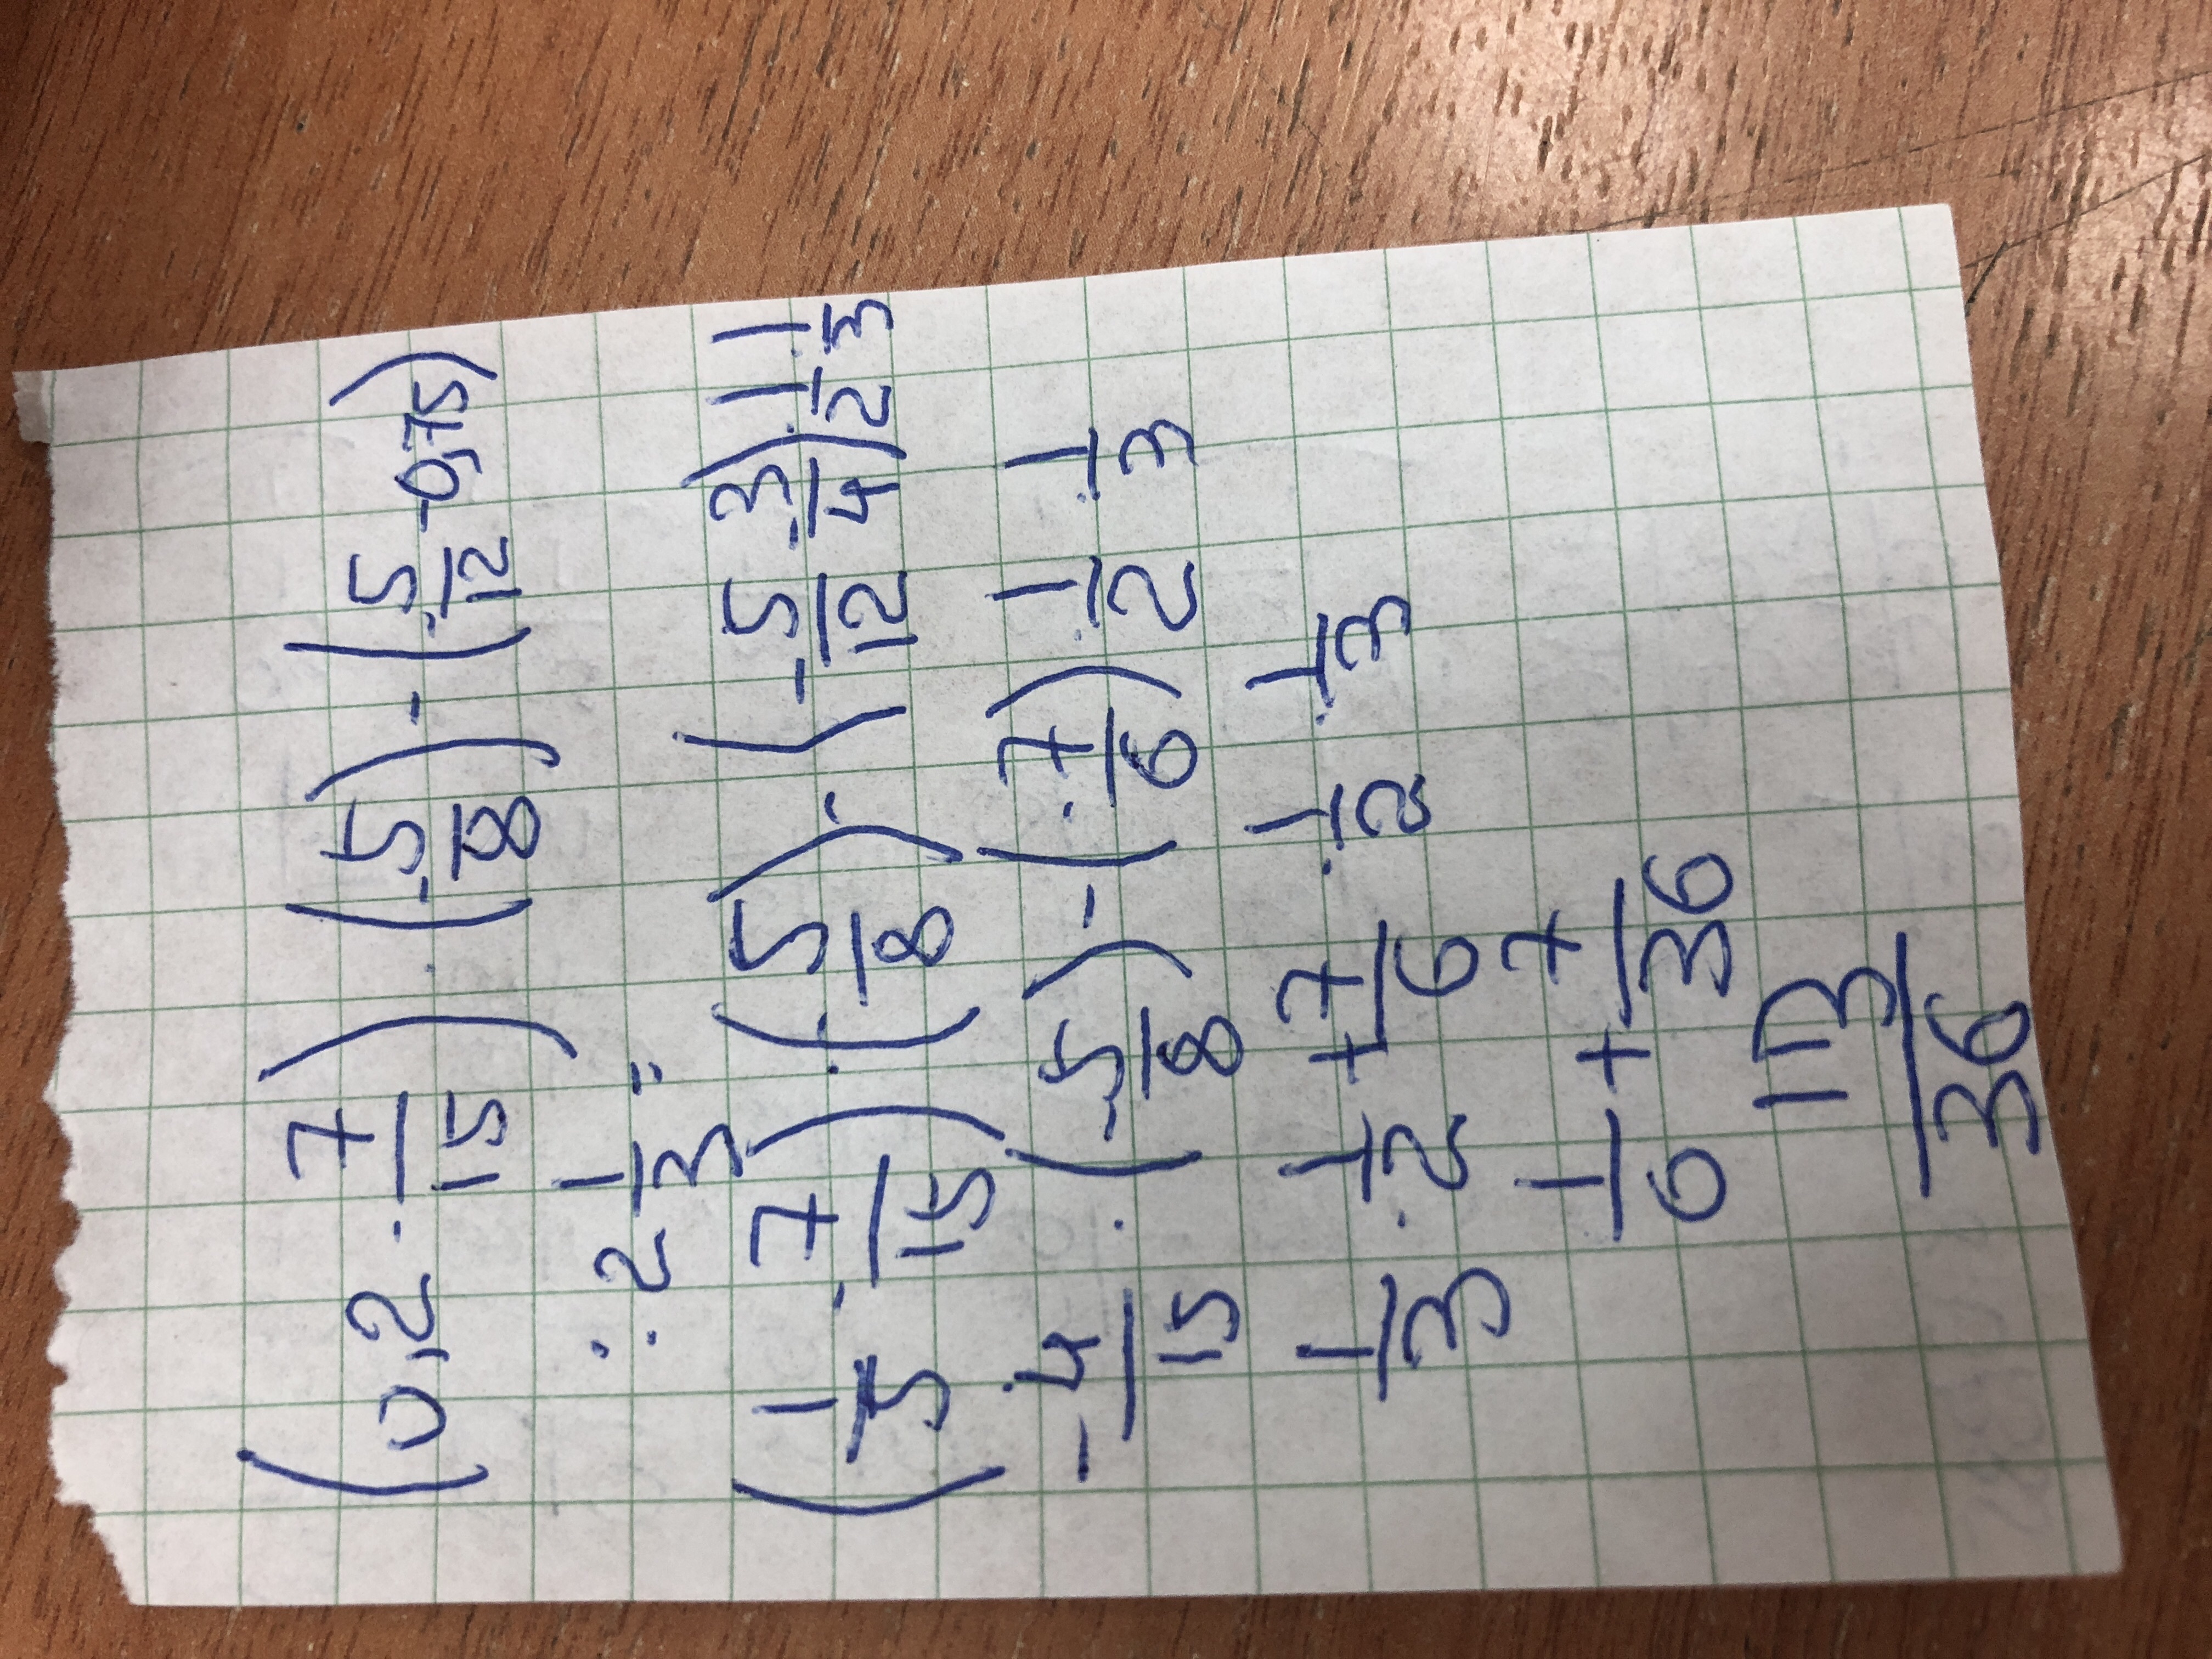 (0,2 - 7/15) · (-5/8) - (-5/12 - 0,75)
: 2 1/3 =
(1/5 - 7/15) · (-5/8) - (-5/12 - 3/4) · 1/2 · 1/3
-4/15 · (-5/8) - (-7/6) · 1/2 · 1/3
1/3 · 1/2 + 7/6 · 1/2 · 1/3
1/6 + 7/36
113/36